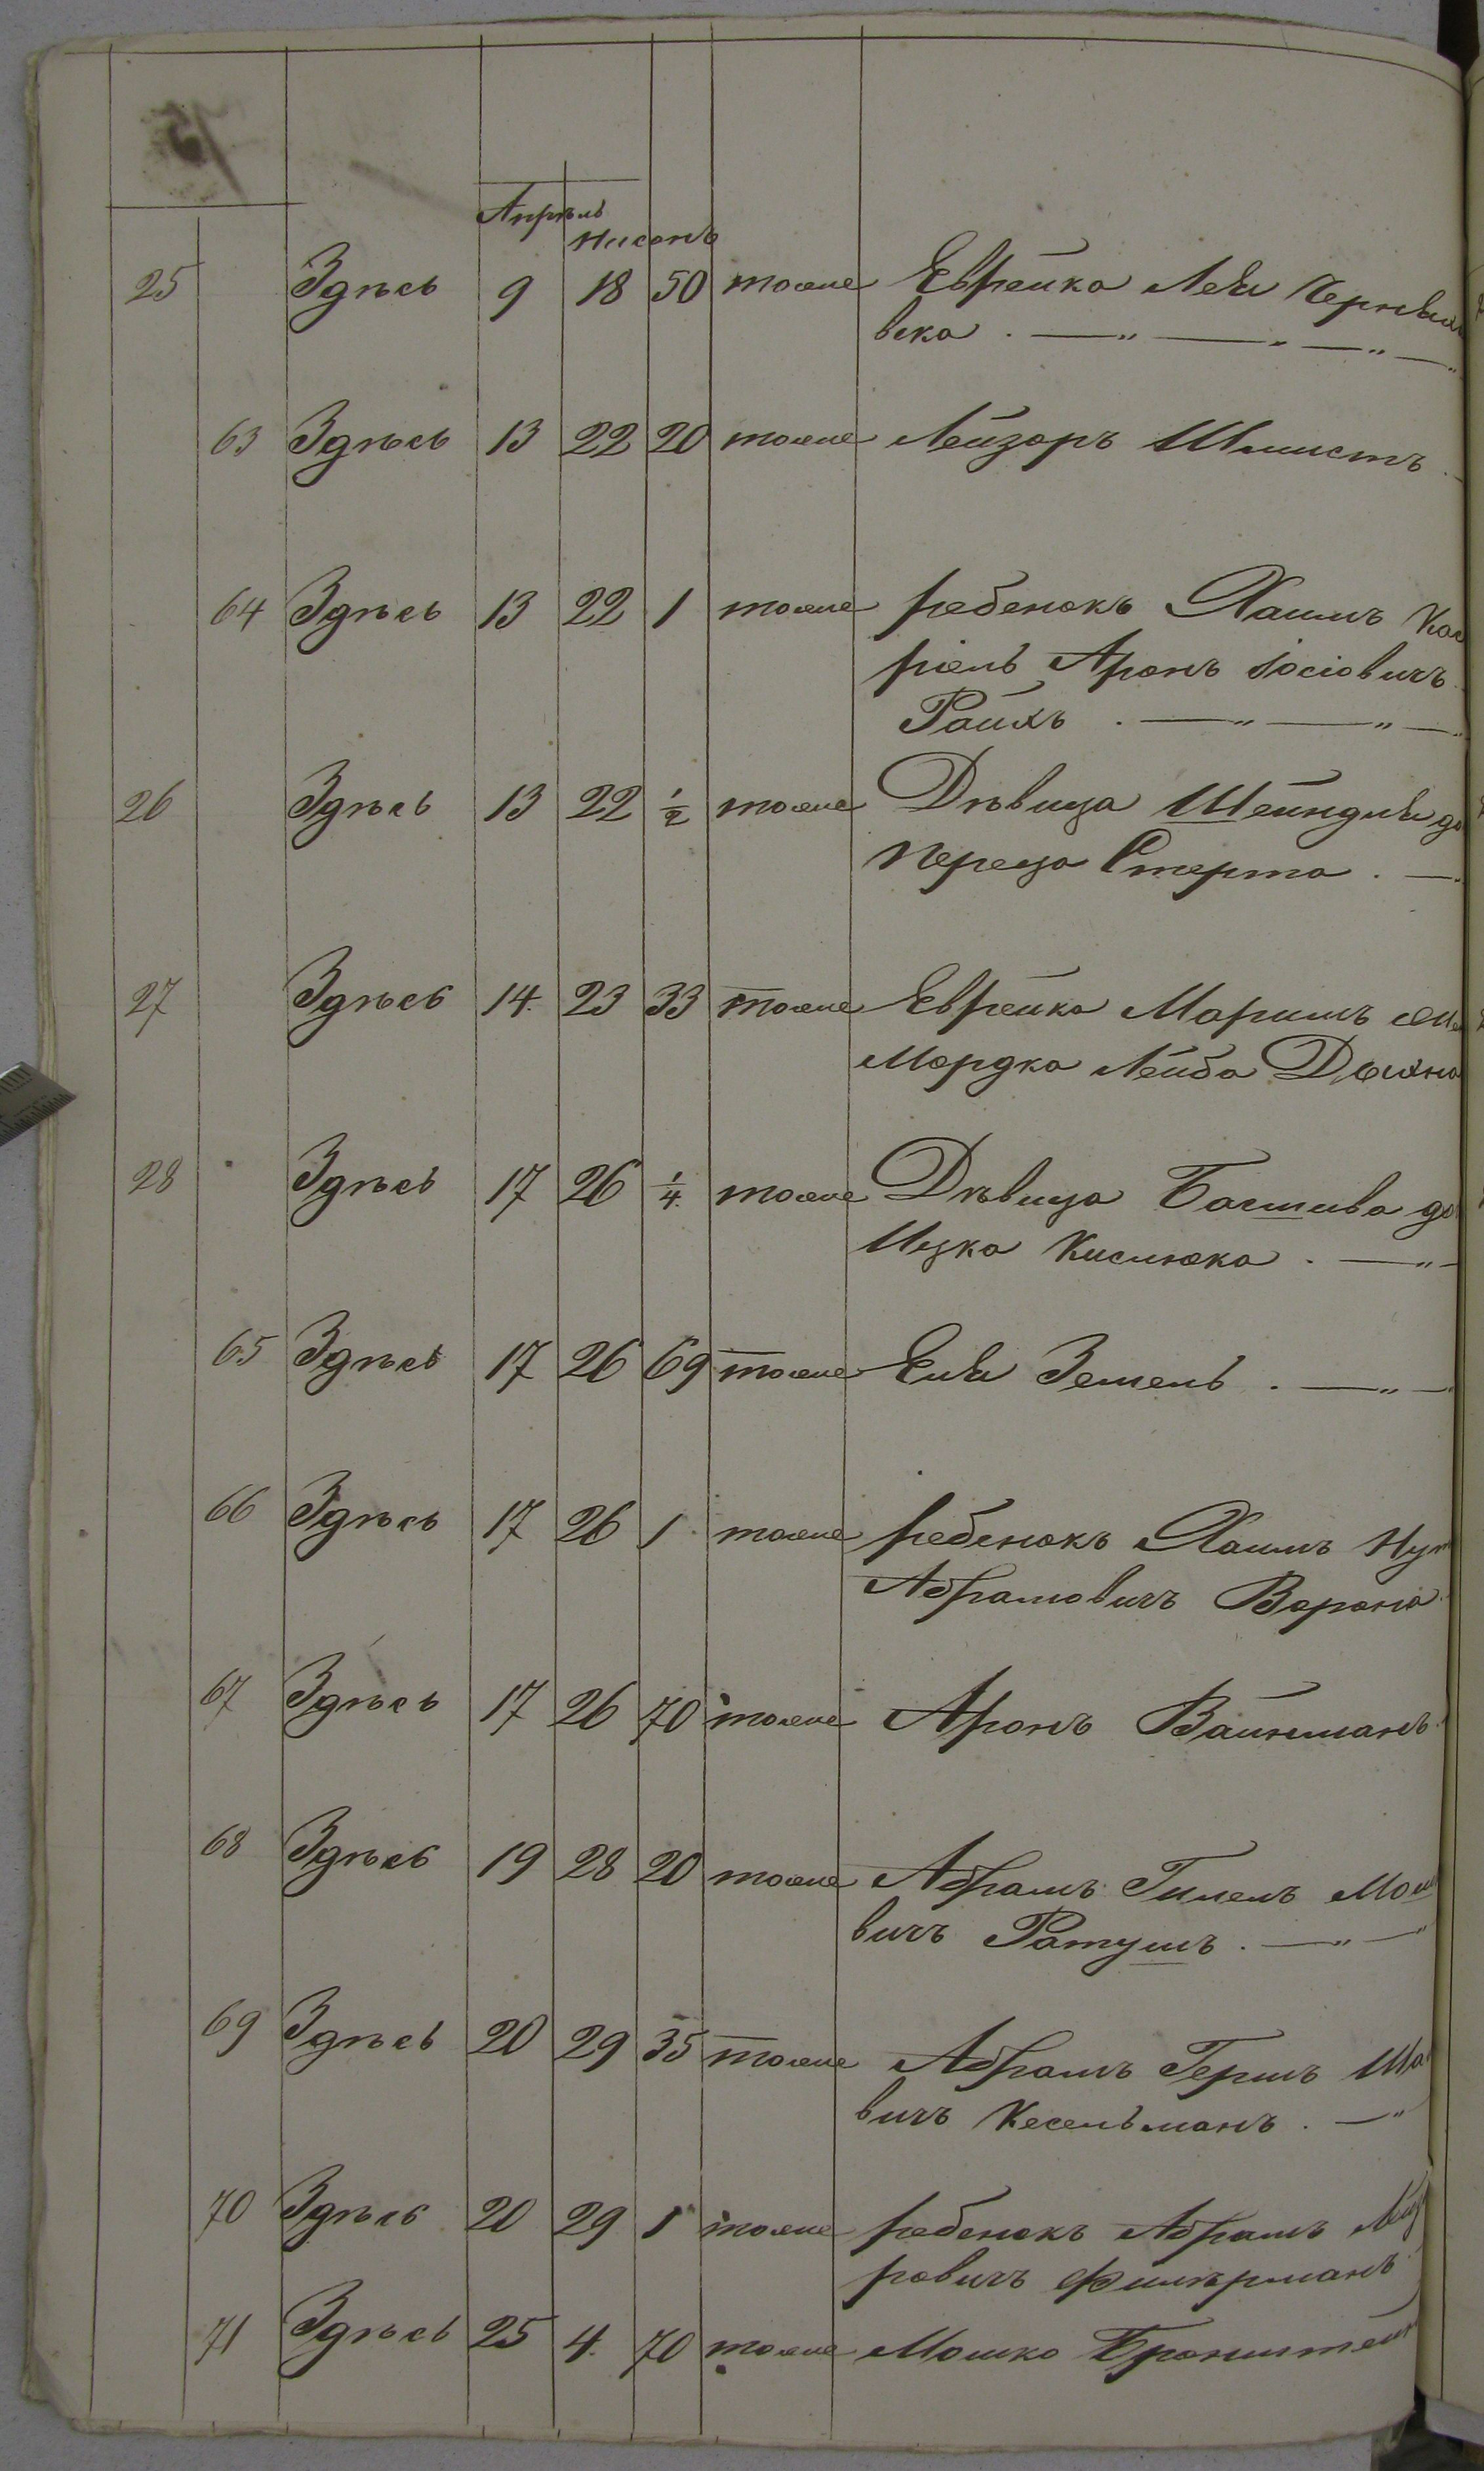 Апрѣль
Нисонъ
25 Здѣсь 9 18 50 тоже Еврейка Лея
вска
63 Здѣсь 13 22 20 тоже Лейзоръ Шмистъ
64 Здѣсь 13 22 1 тоже ребенокъ Хаимъ
ріель Аронъ Іосіовичъ
Райхъ
26 Здѣсь 13 22 1/2 тоже Дѣвица Шейндля до
Переца Стерта
27 Здѣсь 14 23 33 тоже Еврейка Маримъ
Мордка Лейба
28 Здѣсь 17 26 1/4 тоже Дѣвица Басшива до
Ицка Кислюка
65 Здѣсь 17 26 69 тоже Еля Земель
66 Здѣсь 17 26 1 тоже ребенокъ Хаимъ
Абрамовичъ Ворона
67 Здѣсь 17 26 70 тоже Аронъ Вайнманъ
68 Здѣсь 19 28 20 тоже Абрамъ Гилель Мош
вичъ Ратушъ
69 Здѣсь 20 29 35 тоже Абрамъ Гершъ
вичъ Кесельманъ
70 Здѣсь 20 29 1 тоже ребенокъ Абрамъ
ровичъ Фишерманъ
71 Здѣсь 25 4 70 тоже Мошко Бронштейн